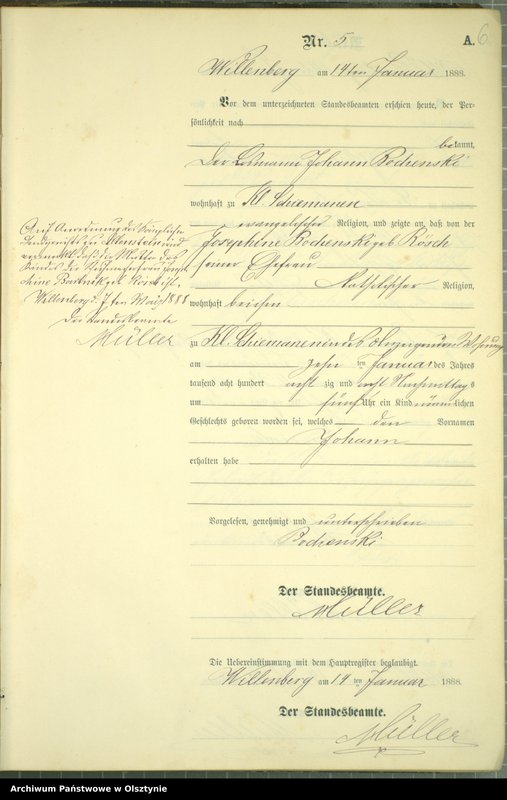 Nr. 5
A. 6
Willenberg am 14ten Januar 1888.
Vor dem unterzeichneten Standesbeamten erschien heute, der Per-
sönlichkeit nach
bekannt,
Der Losmann Johann Bochenski
wohnhaft zu Kl. Schiemanen
evangelischer Religion, und zeigte an, daß von der
Josephine Bochenski geb. Rösch
seiner Ehefrau
katholischer Religion,
wohnhaft bei ihm
zu Kl. Schiemanen in des Anzeigenden Wohnung
am zehn ten Januar des Jahres
tausend acht hundert acht zig und acht Nachmittags
um fünf Uhr ein Kind männlichen
Geschlechts geboren worden sei, welches den Vornamen
Johann
erhalten habe
Vorgelesen, genehmigt und unterschrieben
Bochenski
Der Standesbeamte.
Müller
Die Uebereinstimmung mit dem Hauptregister beglaubigt.
Willenberg am 14 ten Januar 1888.
Der Standesbeamte.
Müller
Auf Anordnung des Königlichen
Landgerichts zu Allenstein wird
vermerkt, daß die Mutter des
Kindes die
Willenberg d. 7ten Mai 1888
Der Standesbeamte
Müller
Archiwum Państwowe w Olsztynie